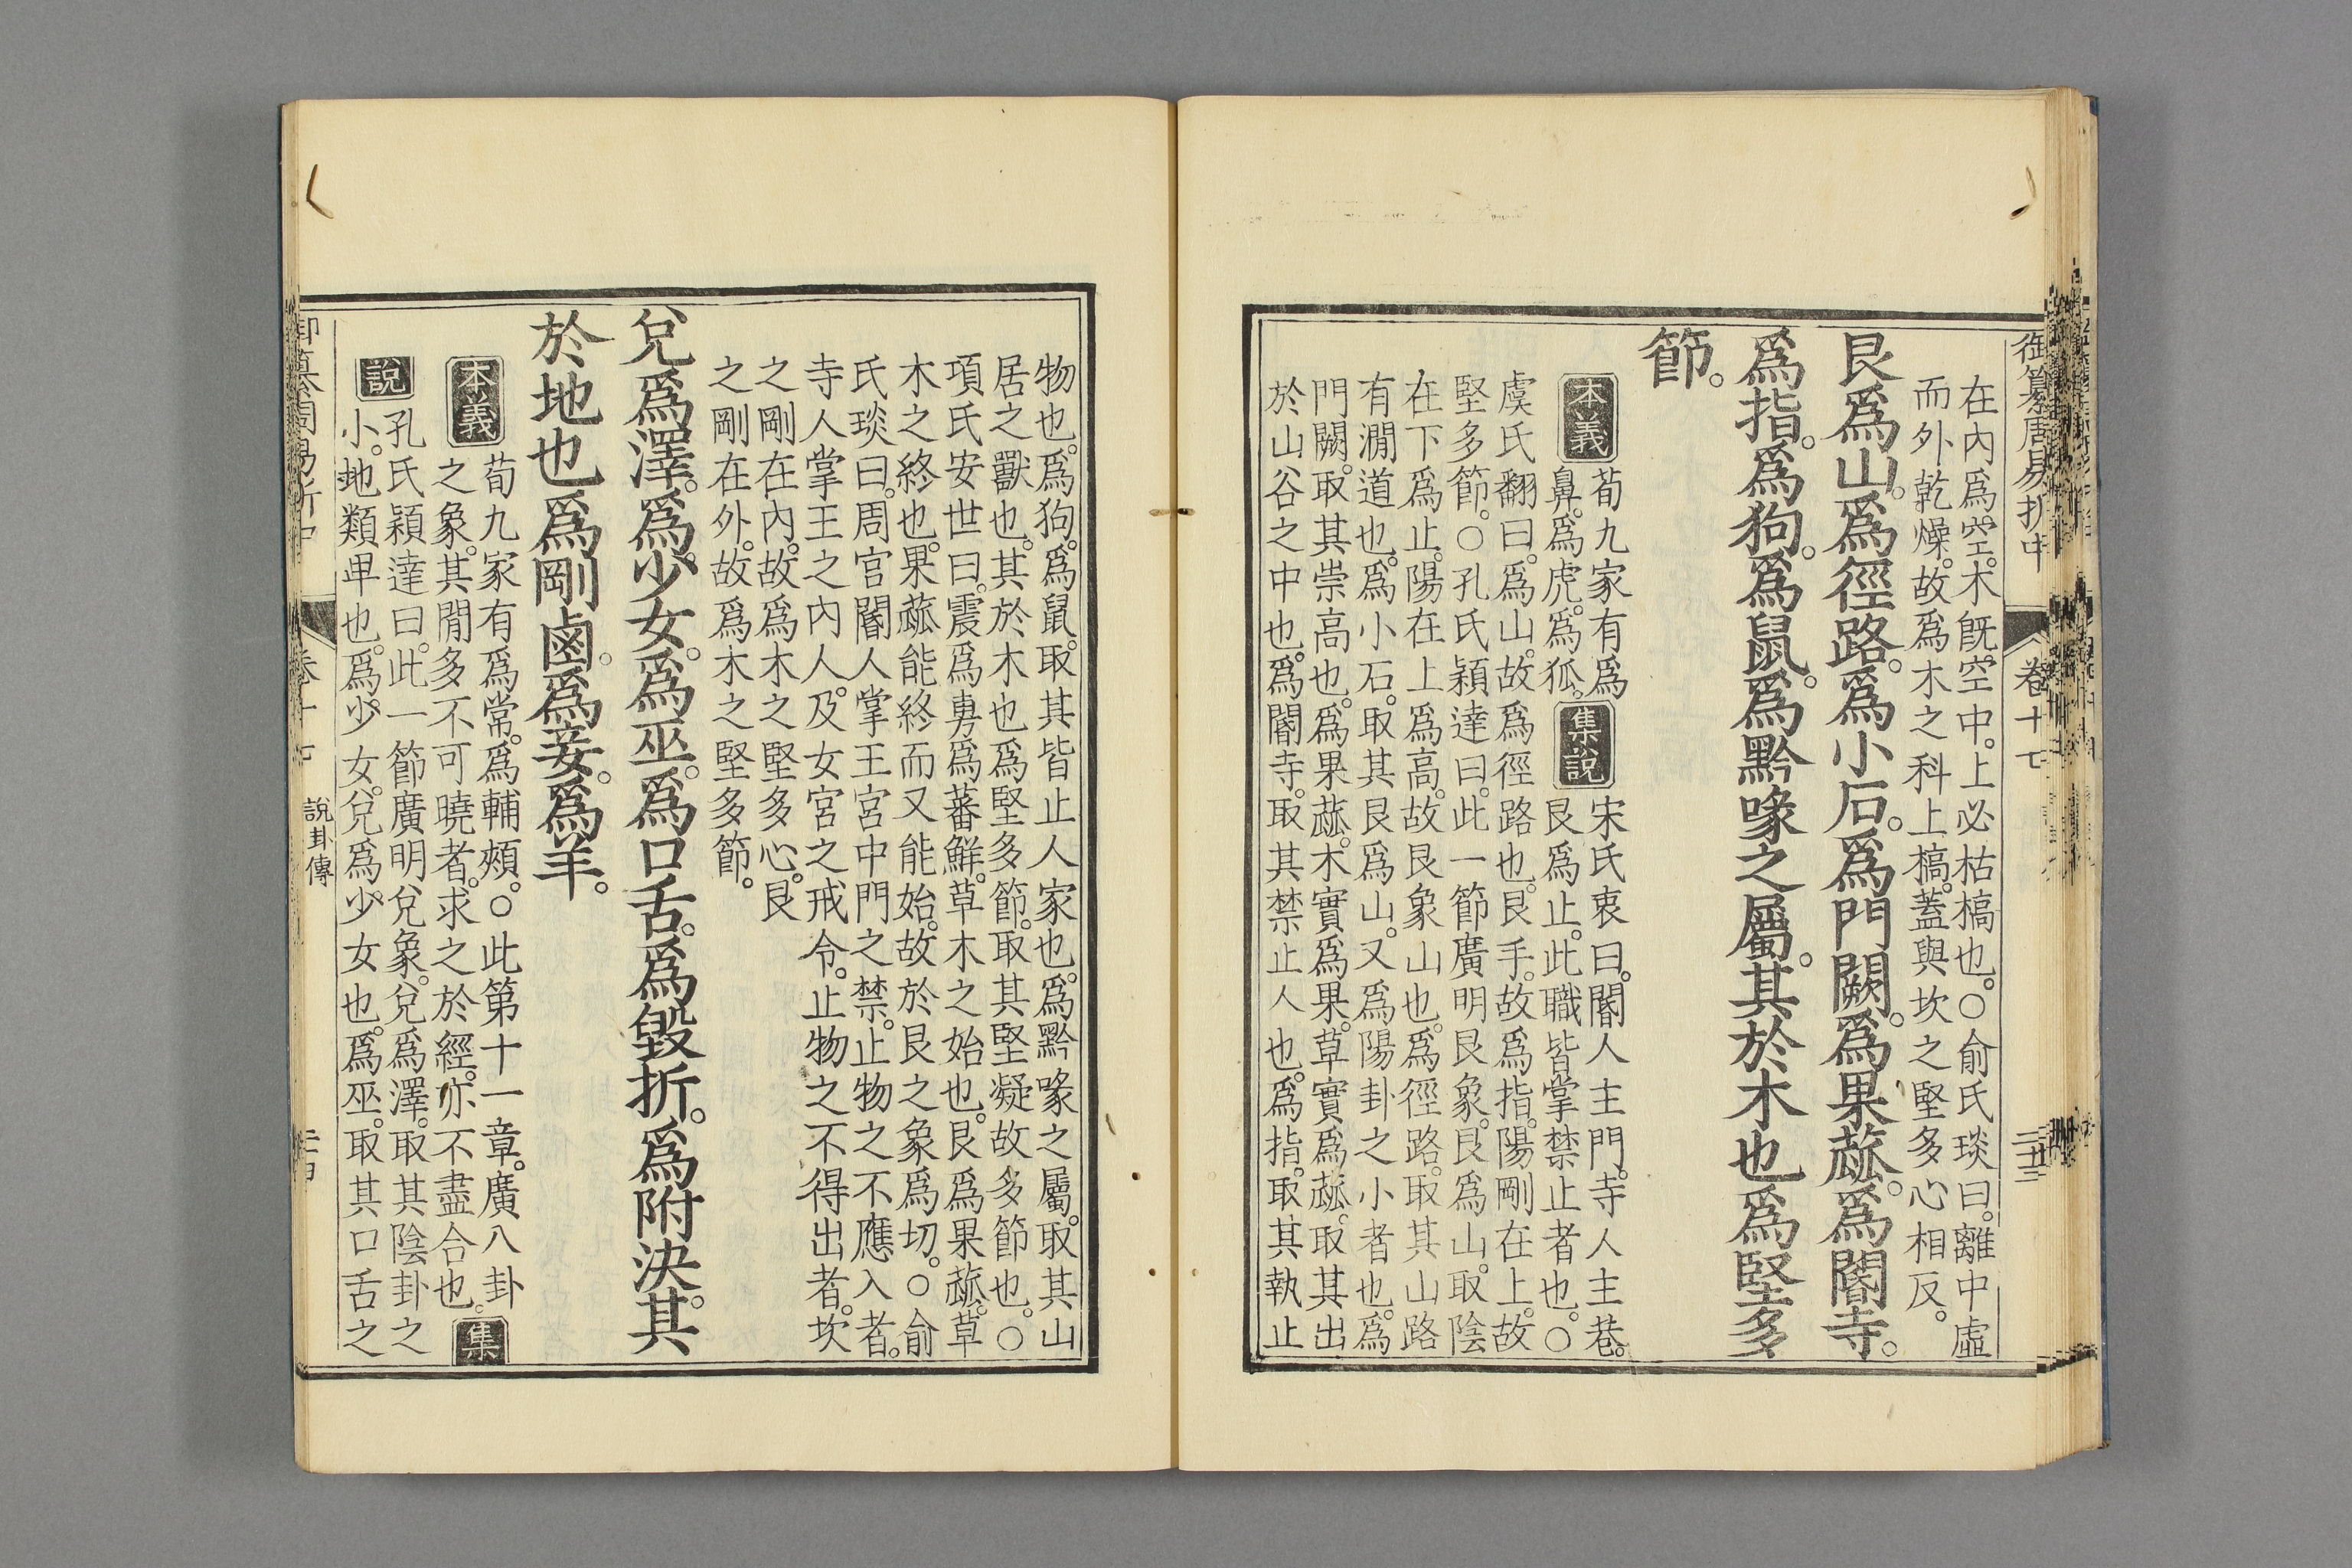 御纂周易折中 卷十七
在內爲空。木旣空中。上必枯槁也。○俞氏琰曰。離中虛
而外乾燥。故爲木之科上槁。蓋與坎之堅多心相反。
艮爲山。爲徑路。爲小石。爲門闕。爲果蓏。爲閽寺。
爲指。爲狗。爲鼠。爲黔喙之屬。其於木也爲堅多
節。
本義 荀九家有爲
鼻。爲虎。爲狐。
集說 宋氏衷曰。閽人主門。寺人主巷。
艮爲止。此職皆掌禁止者也。○
虞氏翻曰。爲山。故爲徑路也。艮手。故爲指。陽剛在上。故
堅多節。○孔氏穎達曰。此一節廣明艮象。艮爲山。取陰
在下爲止。陽在上爲高。故艮象山也。爲徑路。取其山路
有澗道也。爲小石。取其艮爲山。又爲陽卦之小者也。爲
門闕。取其崇高也。爲果蓏。木實爲果。草實爲蓏。取其出
於山谷之中也。爲閽寺。取其禁止人也。爲指。取其執止
物也。爲狗。爲鼠。取其皆止人家也。爲黔喙之屬。取其山
居之獸也。其於木也爲堅多節。取其堅凝故多節也。○
項氏安世曰。震爲旉爲蕃鮮。草木之始也。艮爲果蓏。草
木之終也。果蓏能終而又能始。故於艮之象爲切。○俞
氏琰曰。周官閽人掌王宮中門之禁。止物之不應入者。
寺人掌王之內人。及女宮之戒令。止物之不得出者。坎
之剛在內。故爲木之堅多心。艮
之剛在外。故爲木之堅多節。
兌爲澤。爲少女。爲巫。爲口舌。爲毀折。爲附決。其
於地也爲剛鹵。爲妾。爲羊。
本義 荀九家有爲常。爲輔頰。○此第十一章。廣八卦
之象。其閒多不可曉者。求之於經。亦不盡合也。
集
說 孔氏穎達曰。此一節廣明兌象。兌爲澤。取其陰卦之
小。地類卑也。爲少女。兌爲少女也。爲巫。取其口舌之
御纂周易折中 卷十七 說卦傳